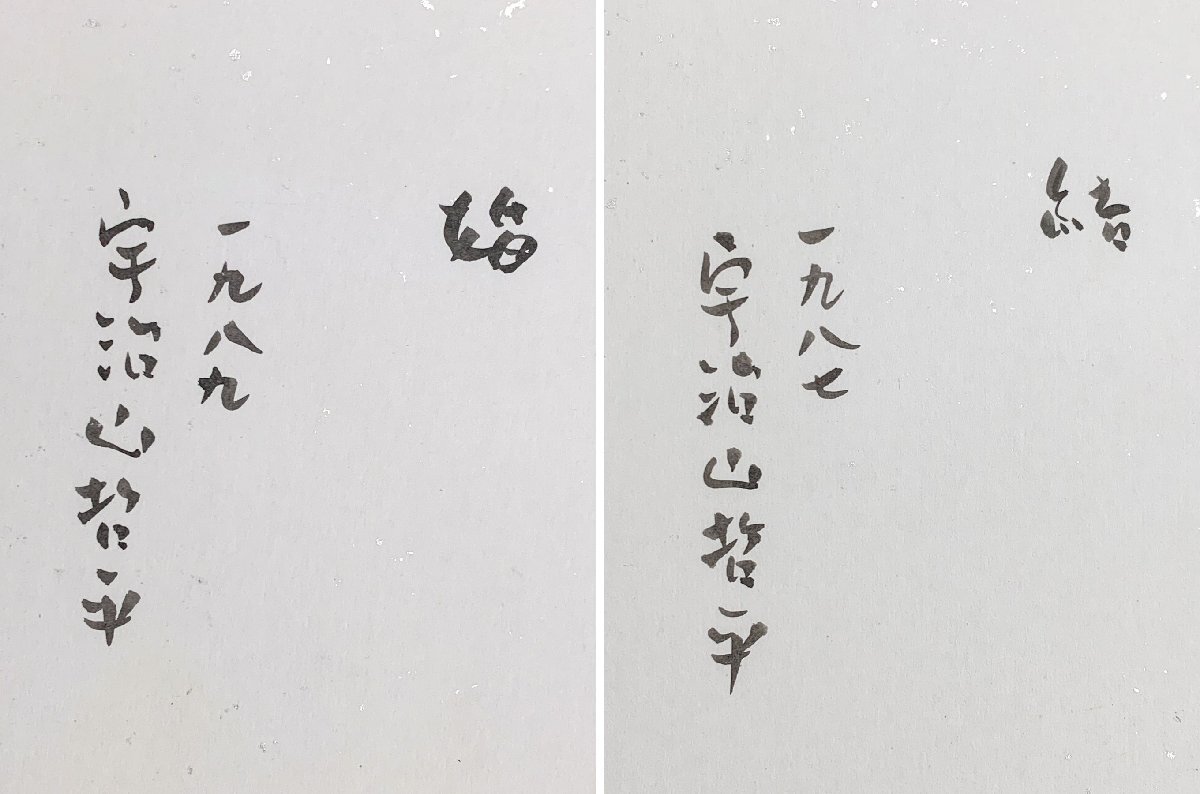 梅
一九八九
宇治山哲平
結
一九八七
宇治山哲平